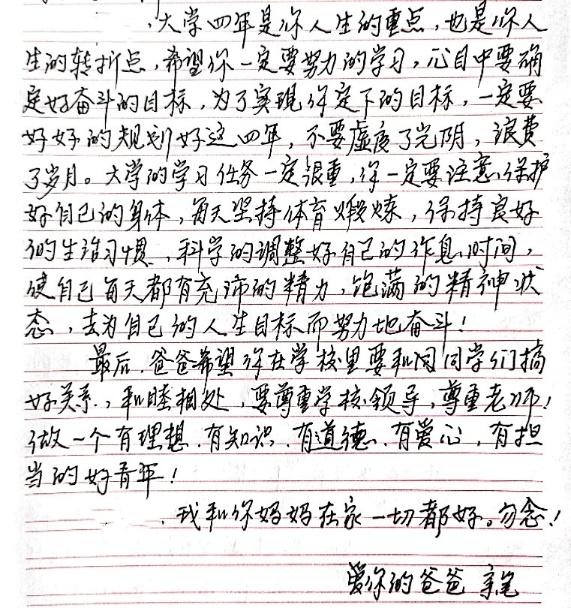 大学四年是你人生的重点，也是你人
生的转折点，希望你一定要努力的学习，心目中要确
定好奋斗的目标，为了实现你定下的目标，一定要
好好的规划好这四年，不要虚度了光阴，浪费
了岁月。大学的学习任务一定很重，你一定要注意保护
好自己的身体，每天坚持体育煅炼，保持良好
的生活习惯，科学的调整好自己的作息时间，
使自己每天都有充沛的精力，饱满的精神状
态，去为自己的人生目标而努力地奋斗！
最后，爸爸希望你在学校里要和同同学们搞
好关系，和睦相处，要尊重学校领导，尊重老师！
做一个有理想、有知识、有道德、有爱心、有担
当的好青年！
我和你妈妈在家一切都好。勿念！
爱你的爸爸 亲笔